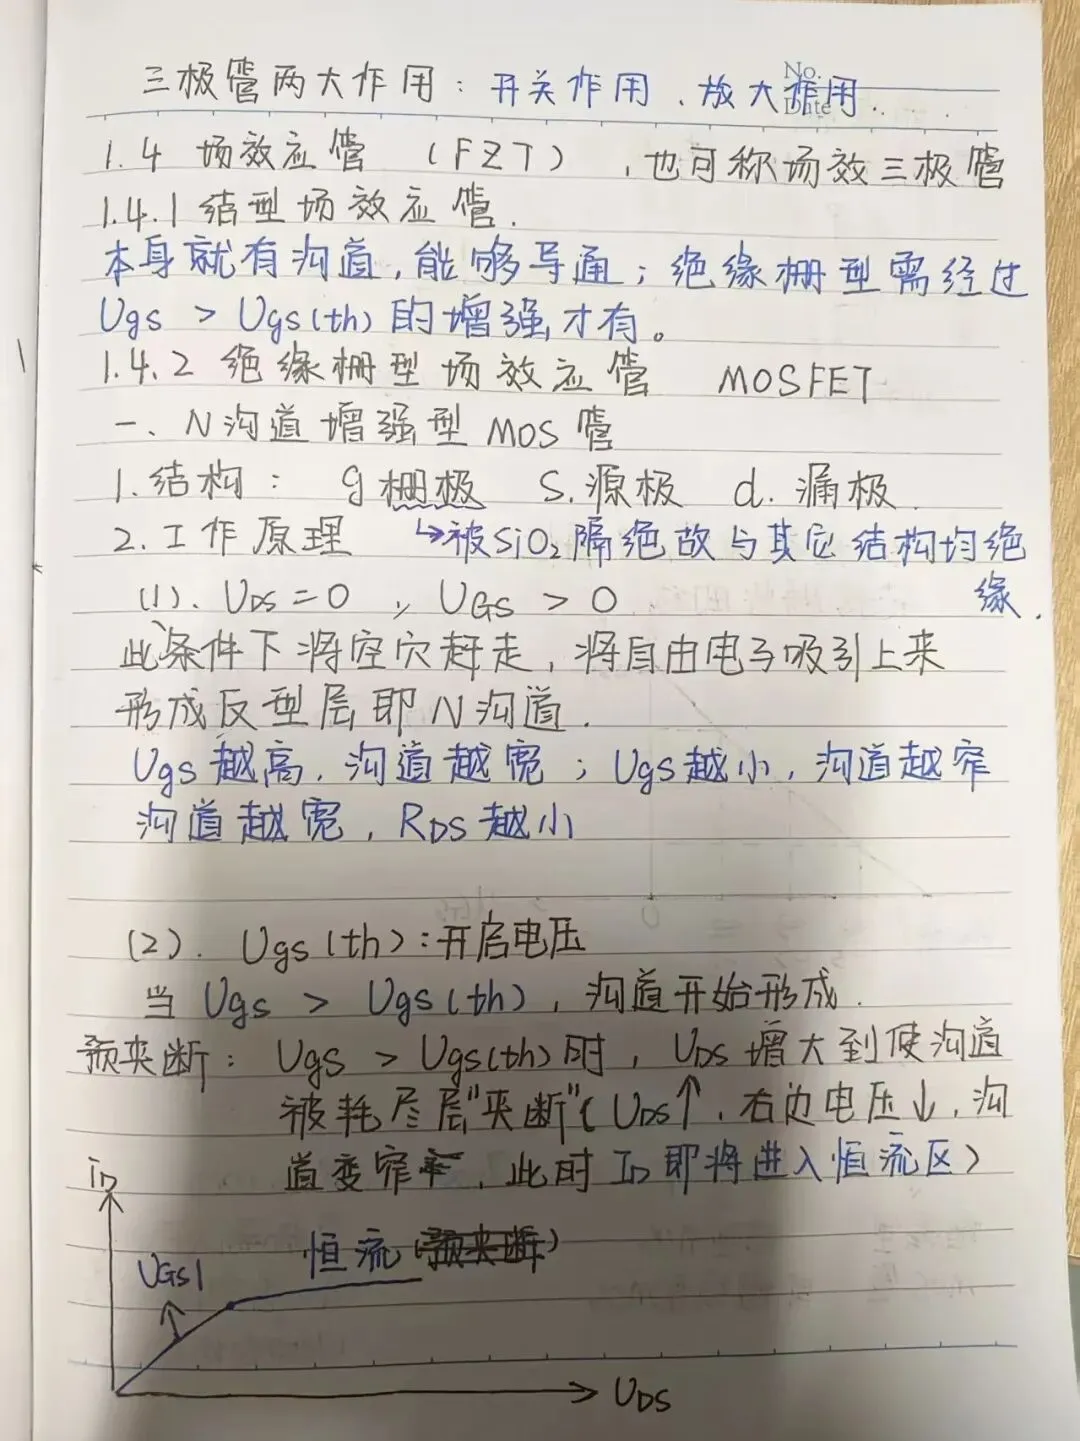 No.
Date
三极管两大作用：开关作用、放大作用.
1.4 场效应管 （FZT），也可称场效三极管
1.4.1 结型场效应管.
本身就有沟道，能够导通；绝缘栅型需经过
Ugs > Ugs(th) 的增强才有。
1.4.2 绝缘栅型场效应管 MOSFET
一、N沟道增强型 MOS管
1.结构： g栅极 S.源极 d.漏极.
2.工作原理 ↳被SiO₂隔绝故与其它结构均绝
缘.
(1). UDS=0 , UGS > 0
此条件下将空穴赶走，将自由电子吸引上来
形成反型层即N沟道.
Ugs越高，沟道越宽；Ugs越小，沟道越窄
沟道越宽，RDS越小
(2). Ugs(th)：开启电压
当 Ugs > Ugs(th)，沟道开始形成.
预夹断： Ugs > Ugs(th)时，UDS增大到使沟道
被耗尽层"夹断"(UDS↑，右边电压↓，沟
道变窄，此时 ID 即将进入恒流区)
iD
恒流(预夹断)
UGS1
UDS